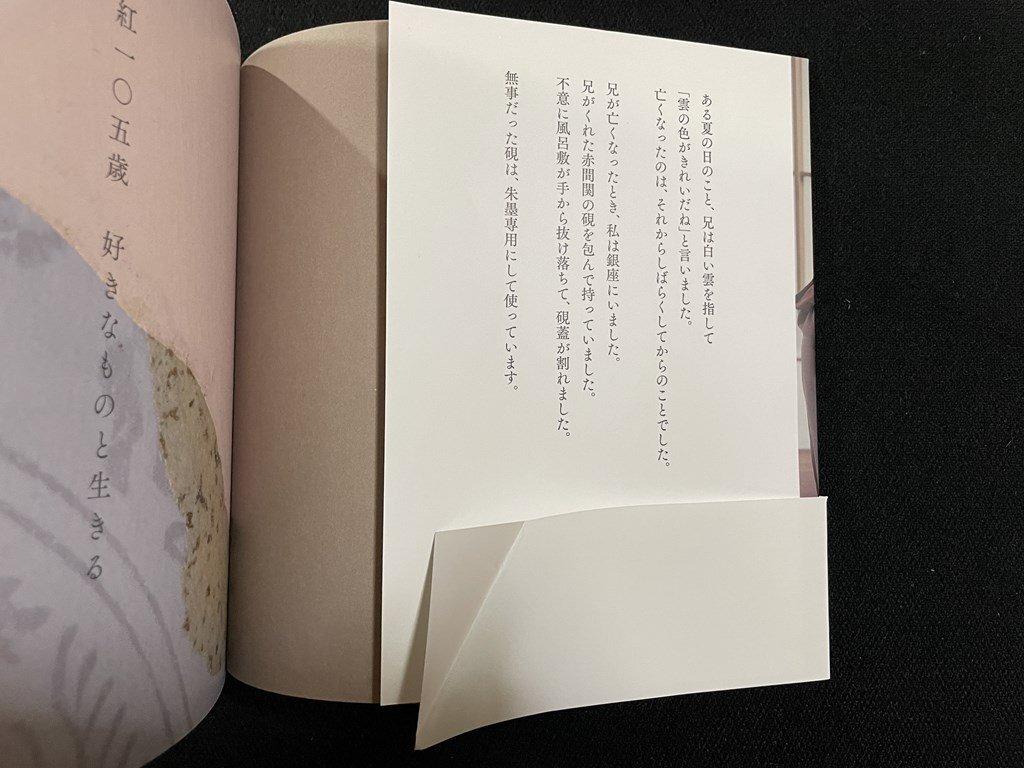 ある夏の日のこと、兄は白い雲を指して
「雲の色がきれいだね」と言いました。
亡くなったのは、それからしばらくしてからのことでした。
兄が亡くなったとき、私は銀座にいました。
兄がくれた赤間関の硯を包んで持っていました。
不意に風呂敷が手から抜け落ちて、硯蓋が割れました。
無事だった硯は、朱墨専用にして使っています。
紅一〇五歳 好きなものと生きる